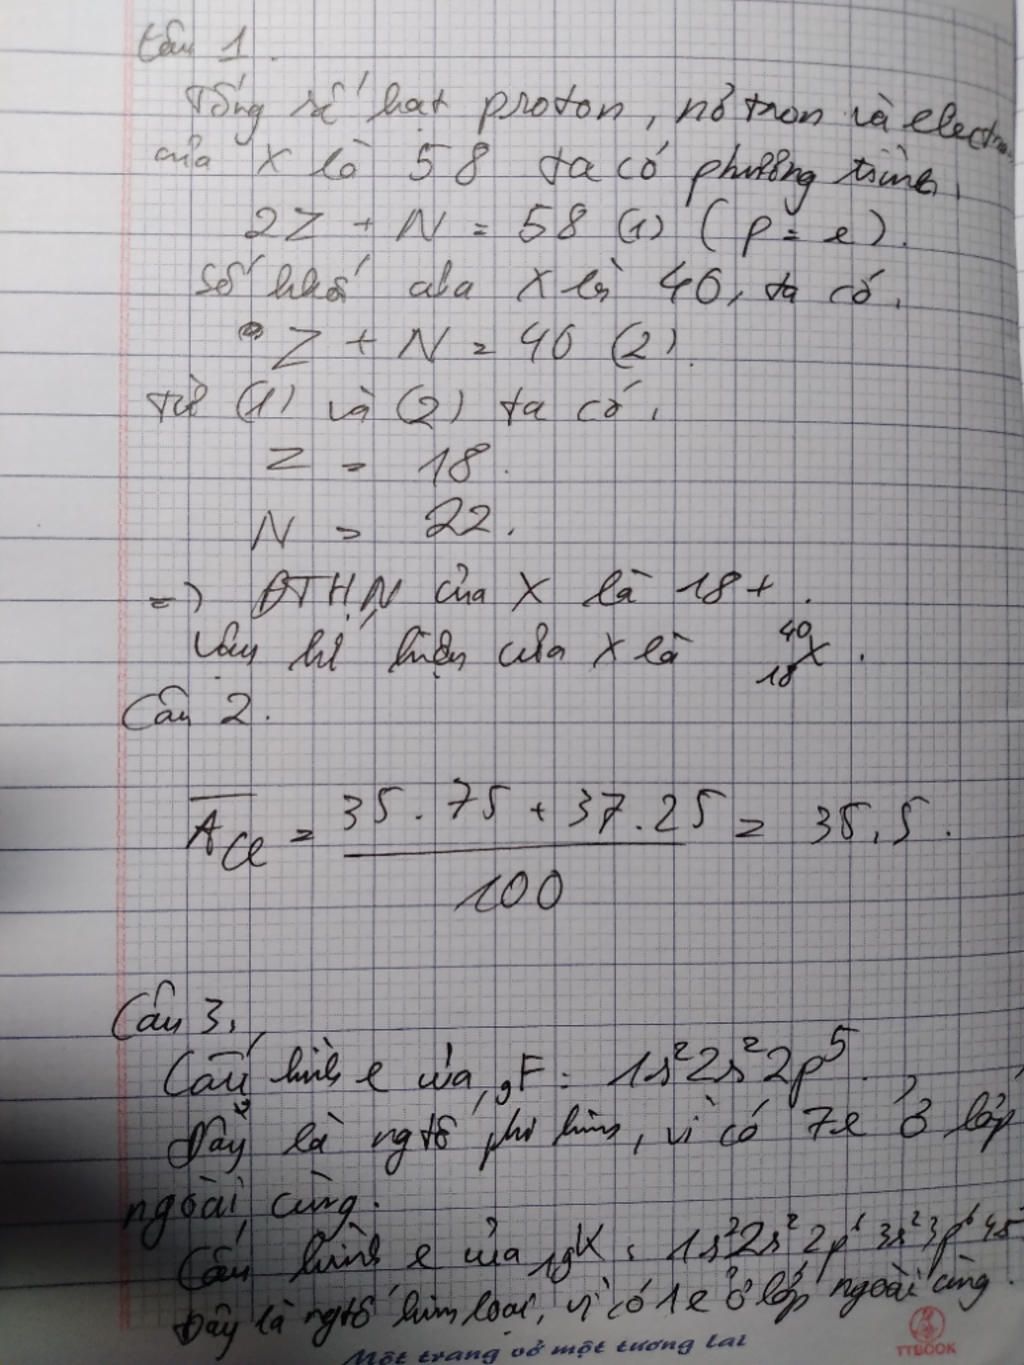 Câu 1.
Tổng số hạt proton, nơtron và electron
của X là 58 ta có phương trình,
2Z + N = 58 (1) (p = e).
Số khối của X là 40, ta có,
Z + N = 40 (2).
Từ (1) và (2) ta có,
Z = 18.
N = 22.
=> ĐTHN của X là 18+.
Vậy kí hiệu của X là ⁴⁰₁₈X.
Câu 2.
A̅Cl = (35.75 + 37.25)/100 = 35,5.
Câu 3,
Cấu hình e của ₉F: 1s²2s²2p⁵.
Đây là ngtố phi kim, vì có 7e ở lớp
ngoài cùng.
Cấu hình e của ₁₉K: 1s²2s²2p⁶3s²3p⁶4s
Đây là ngtố kim loại, vì có 1e ở lớp ngoài cùng.
Một trang vở một tương lai
TTBOOK